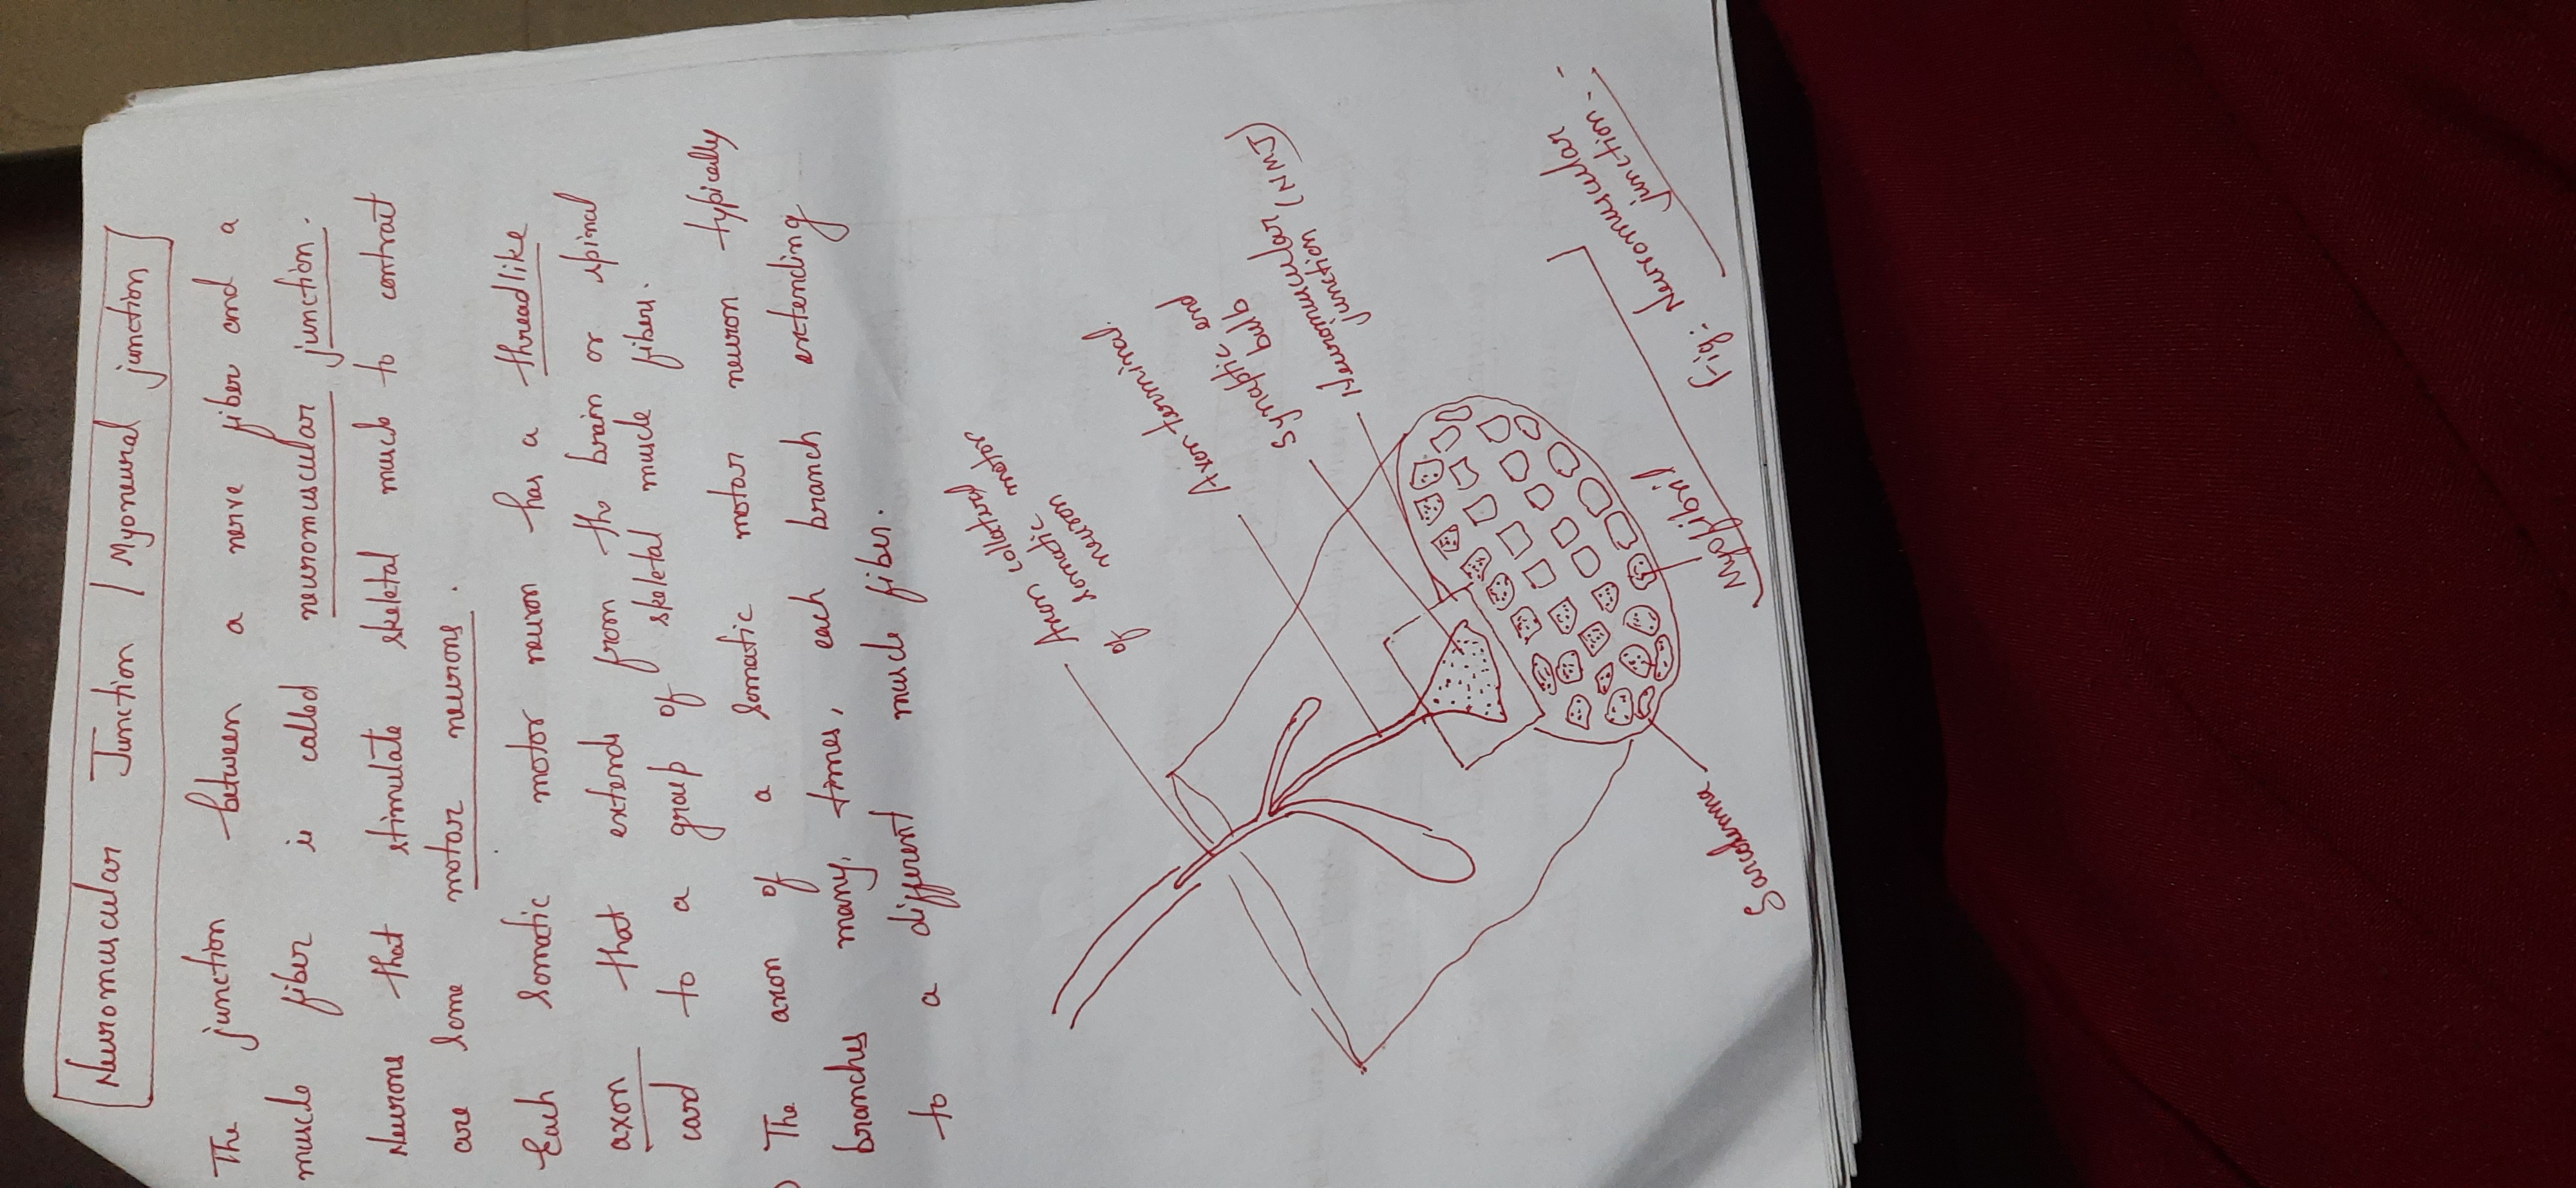 Neuromuscular Junction / Myoneural junction
The junction between a nerve fiber and a
muscle fiber is called neuromuscular junction.
Neurons that stimulate skeletal muscle to contract
are some motor neurons.
Each somatic motor neuron has a threadlike
axon that extends from the brain or spinal
cord to a group of skeletal muscle fibers.
The axon of a somatic motor neuron typically
branches many, times, each branch extending
to a different muscle fiber.
Axon collateral
of somatic motor
neuron
Axon terminal.
Synaptic end
bulb
Neuromuscular
junction (NMJ)
Sarcolemma
Myofibril
Fig: Neuromuscular
junction -: